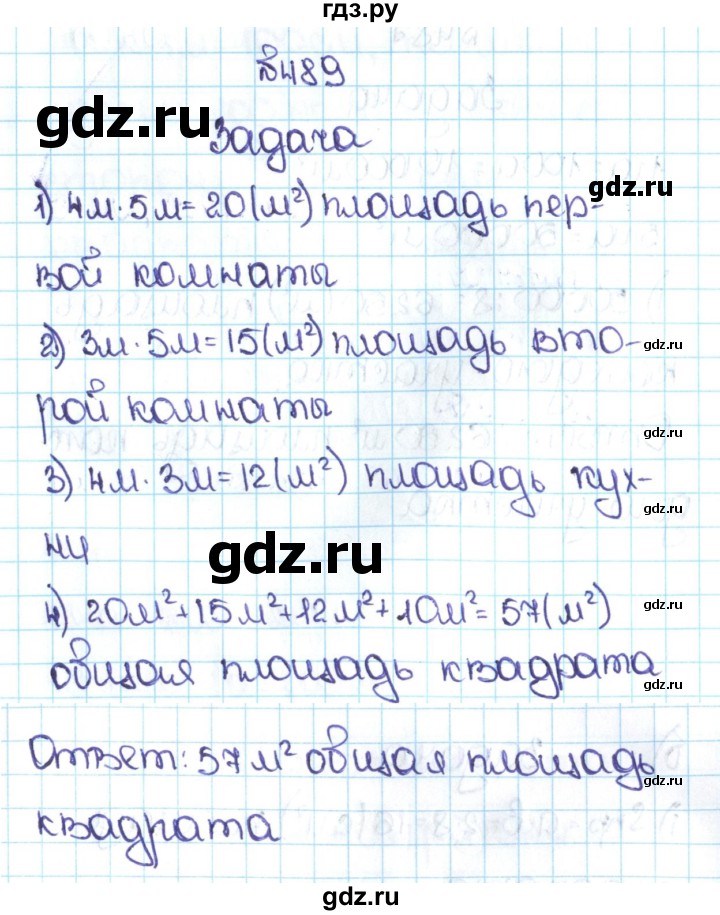 гдз.ру
№489
gdz.ru
Задача
gdz.ru
1) 4м·5м=20(м²) площадь пер-
вой комнаты
2) 3м·5м=15(м²) площадь вто-
gdz.ru
рой комнаты
gdz.ru
3) 4м·3м=12(м²) площадь кух-
gdz.ru
ни
gdz.ru
4) 20м²+15м²+12м²+10м²=57(м²)
gdz.ru
общая площадь квадрата
gdz.ru
Ответ: 57м² общая площадь
gdz.ru
квадрата
gdz.ru